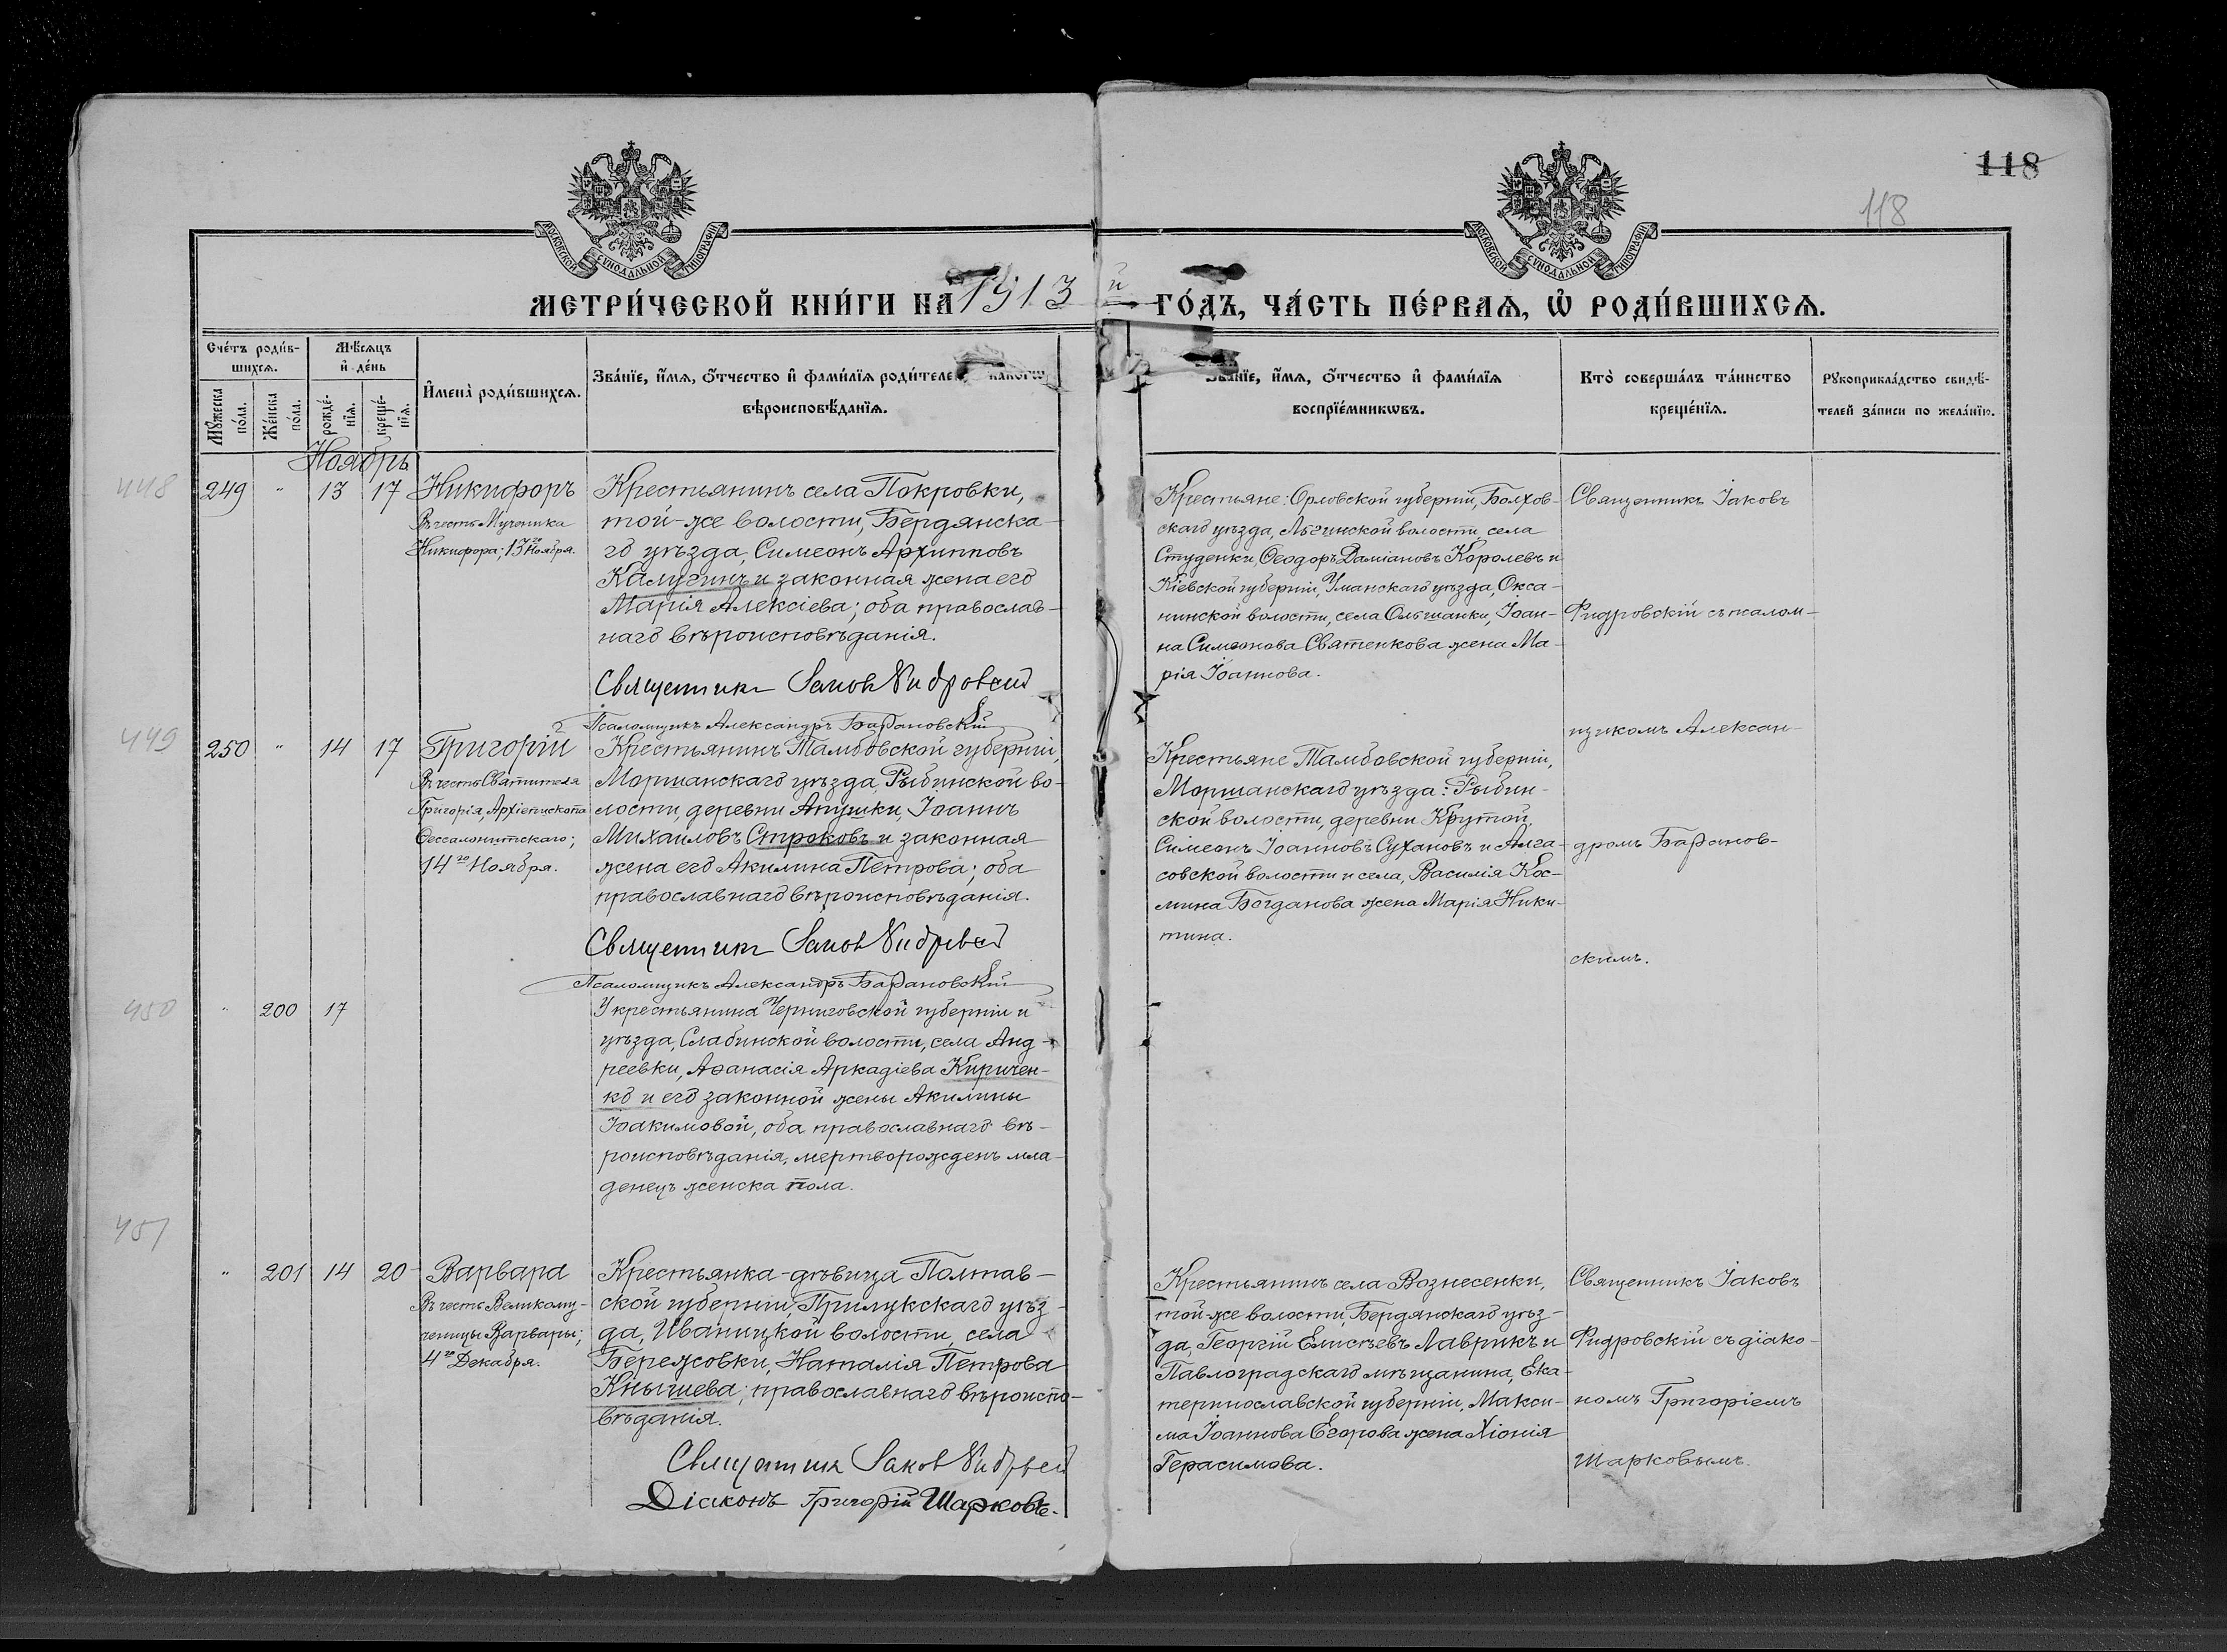 118
118
МОСКОВСКОЙ СѴНОДАЛЬНОЙ ТИПОГРАФІИ
МОСКОВСКОЙ СѴНОДАЛЬНОЙ ТИПОГРАФІИ
МЕТРИ́ЧЕСКОЙ КНИ́ГИ НА 1913 й ГО́ДЪ, ЧА́СТЬ ПЕ́РВАѦ, Ѡ҆ РОДИ́ВШИХСѦ.
Сче́тъ роди́в-
шихсѧ.
Мꙋ́жеска
по́ла.
Же́нска
по́ла.
Мѣ́сѧцъ
и҆ де́нь
рожде́-
нїѧ.
креще́-
нїѧ.
И҆мена̀ роди́вшихсѧ.
Зва́нїе, и҆́мѧ, о҆́тчество и҆ фами́лїѧ роди́телей, како́гѡ
вѣроисповѣ́данїѧ.
Зва́нїе, и҆́мѧ, о҆́тчество и҆ фами́лїѧ
воспрїе́мникѡвъ.
Кто̀ соверша́лъ та́инство
креще́нїѧ.
Рꙋкоприкла́дство свидѣ́-
телей за́писи по жела́нїю.
Ноябрь
448
249
"
13
17
Никифоръ
Въ честь Мученика
Никифора; 13го Ноября.
Крестьянинъ села Покровки,
той-же волости, Бердянска-
го уѣзда, Симеонъ Архипповъ
Калугинъ и законная жена его
Марія Алексіева; оба православ-
наго вѣроисповѣданія.
Священникъ Іаковъ Фидровскій
Псаломщикъ Александръ Барановскій
Крестьяне: Орловской губерніи, Болхов-
скаго уѣзда, Льгинской волости, села
Студенки, Ѳеодоръ Даміановъ Королевъ и
Кіевской губерніи, Уманскаго уѣзда, Окса-
нинской волости, села Ольшанки, Іоан-
на Симеонова Святенкова жена Ма-
рія Іоаннова.
Священникъ Іаковъ
Фидровскій съ псалом-
щикомъ Алексан-
дромъ Баранов-
скимъ.
449
250
"
14
17
Григорій
Въ честь Святителя
Григорія, Архіепископа
Ѳессалонитскаго;
14го Ноября.
Крестьянинъ Тамбовской губерніи,
Моршанскаго уѣзда, Рыбинской во-
лости, деревни Апушки, Іоаннъ
Михаиловъ Строковъ и законная
жена его Акилина Петрова; оба
православнаго вѣроисповѣданія.
Священникъ Іаковъ Фидровскій
Псаломщикъ Александръ Барановскій
Крестьяне Тамбовской губерніи,
Моршанскаго уѣзда: Рыбин-
ской волости, деревни Крутой,
Симеонъ Іоанновъ Сухановъ и Алга-
совской волости и села, Василія Кос-
мина Богданова жена Марія Ники-
тина.
450
"
200
17
У крестьянина Черниговской губерніи и
уѣзда, Слабинской волости, села Анд-
реевки, Аѳанасія Аркадіева Киричен-
ко и его законной жены Акилины
Іоакимовой, оба православнаго вѣ-
роисповѣданія, мертворожденъ мла-
денецъ женска пола.
451
"
201
14
20
Варвара
Въ честь Великому-
ченицы Варвары;
4го Декабря.
Крестьянка-дѣвица Полтав-
ской губерніи, Прилукскаго уѣз-
да, Иваницкой волости, села
Бережовки, Наталія Петрова
Кнышева; православнаго вѣроиспо-
вѣданія.
Священникъ Іаковъ Фидровскій
Діаконъ Григорій Шарковъ.
Крестьянинъ села Вознесенки,
той-же волости, Бердянскаго уѣз-
да, Георгій Елисѣевъ Лаврикъ и
Павлоградскаго мѣщанина, Ека-
теринославской губерніи, Макси-
ма Іоаннова Егорова жена Хіонія
Герасимова.
Священникъ Іаковъ
Фидровскій съ діако-
номъ Григоріемъ
Шарковымъ.